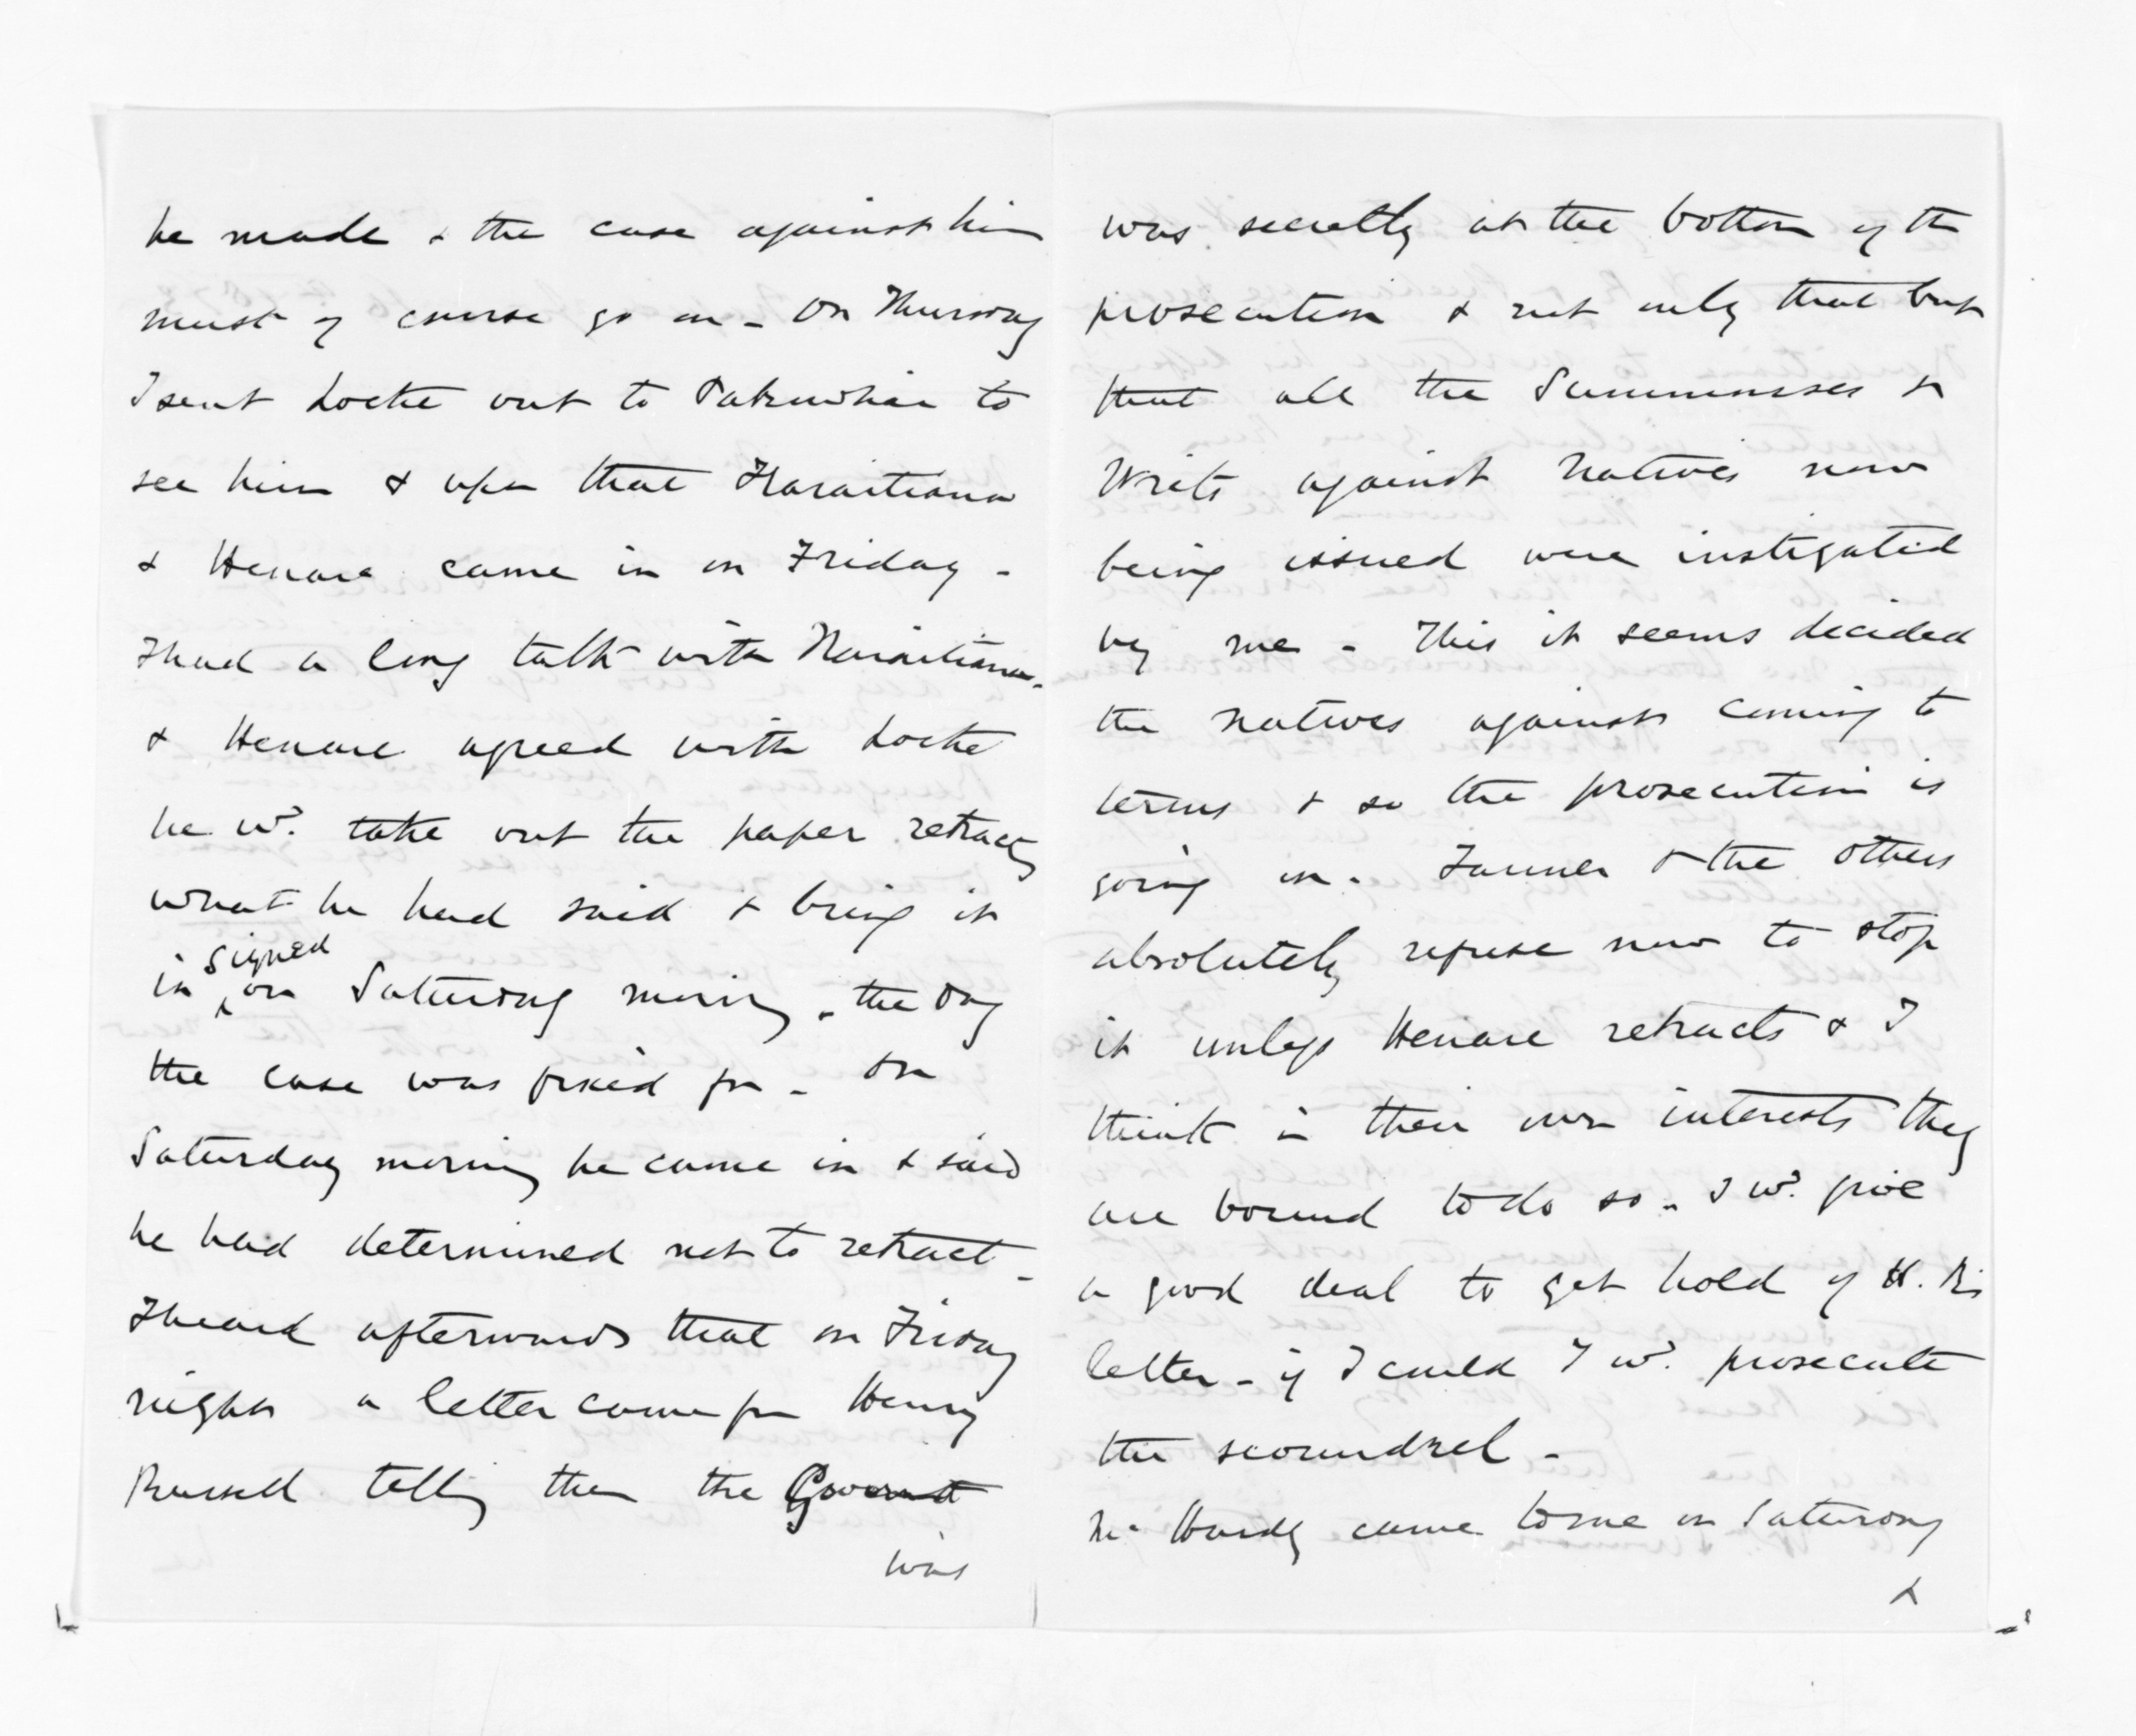 be made & the case against him
must of course go on - On Thursday
I sent Locke out to Pakowhai to
see him & upon that Karaitiana
& Henare came in on Friday -
I had a long talk with Karaitiana -
& Henare agreed with Locke
he wd. take out the paper retractg
what he had said & bring it
signed
in on Saturday morning - the day
the case was fixed for - On
Saturday morning he came in & said
he had determined not to retract -
I heard afterwards that on Friday
night a letter came fm Henry
Russell telling them the Governt
was
was secretly at the bottom of the
prosecution & not only that but
that all the Summonses &
Writs against Natives now
being issued were instigated
by me - This it seems decided
the natives against coming to
terms & so the prosecution is
going on. Tanner & the others
absolutely refuse now to stop
it unless Henare retracts & I
think in their own interests they
are bound to do so - I wd. give
a good deal to get hold of H. R's
letter - if I could I wd. prosecute
the scoundrel -
Mc Hardy came to me on Saturday
&